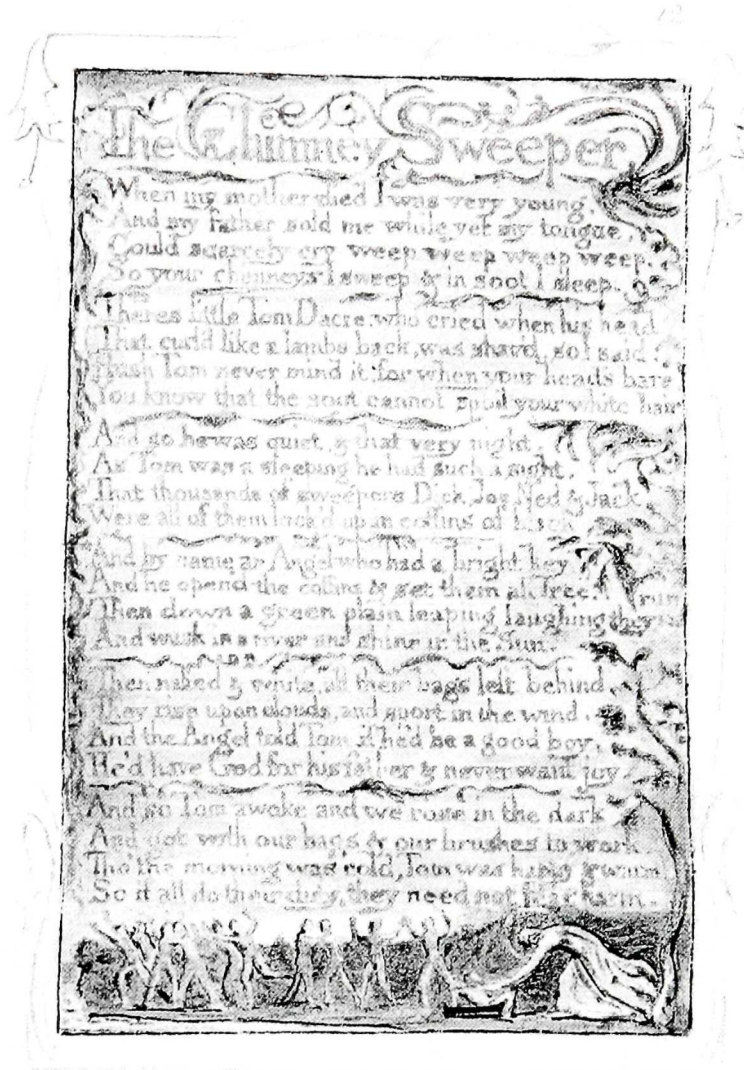 12
The Chimney Sweeper
When my mother died I was very young,
And my father sold me while yet my tongue,
Could scarcely cry weep weep weep weep.
So your chimneys I sweep & in soot I sleep.
Theres little Tom Dacre, who cried when his head
That curl'd like a lambs back, was shav'd, so I said.
Hush Tom never mind it, for when your head's bare
You know that the soot cannot spoil your white hair
And so he was quiet, & that very night,
As Tom was a sleeping he had such a sight,
That thousands of sweepers Dick, Joe, Ned & Jack
Were all of them lock'd up in coffins of black
And by came an Angel who had a bright key
And he open'd the coffins & set them all free.
Then down a green plain leaping laughing they run
And wash in a river and shine in the Sun.
Then naked & white, all their bags left behind,
They rise upon clouds, and sport in the wind.
And the Angel told Tom, if he'd be a good boy,
He'd have God for his father & never want joy.
And so Tom awoke and we rose in the dark
And got with our bags & our brushes to work.
Tho' the morning was cold, Tom was happy & warm,
So if all do their duty, they need not fear harm.